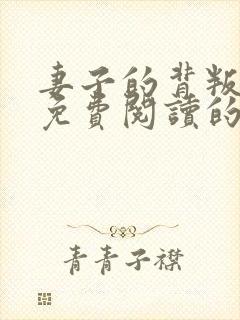 妻子的背叛
免費閱讀的
青青子襟